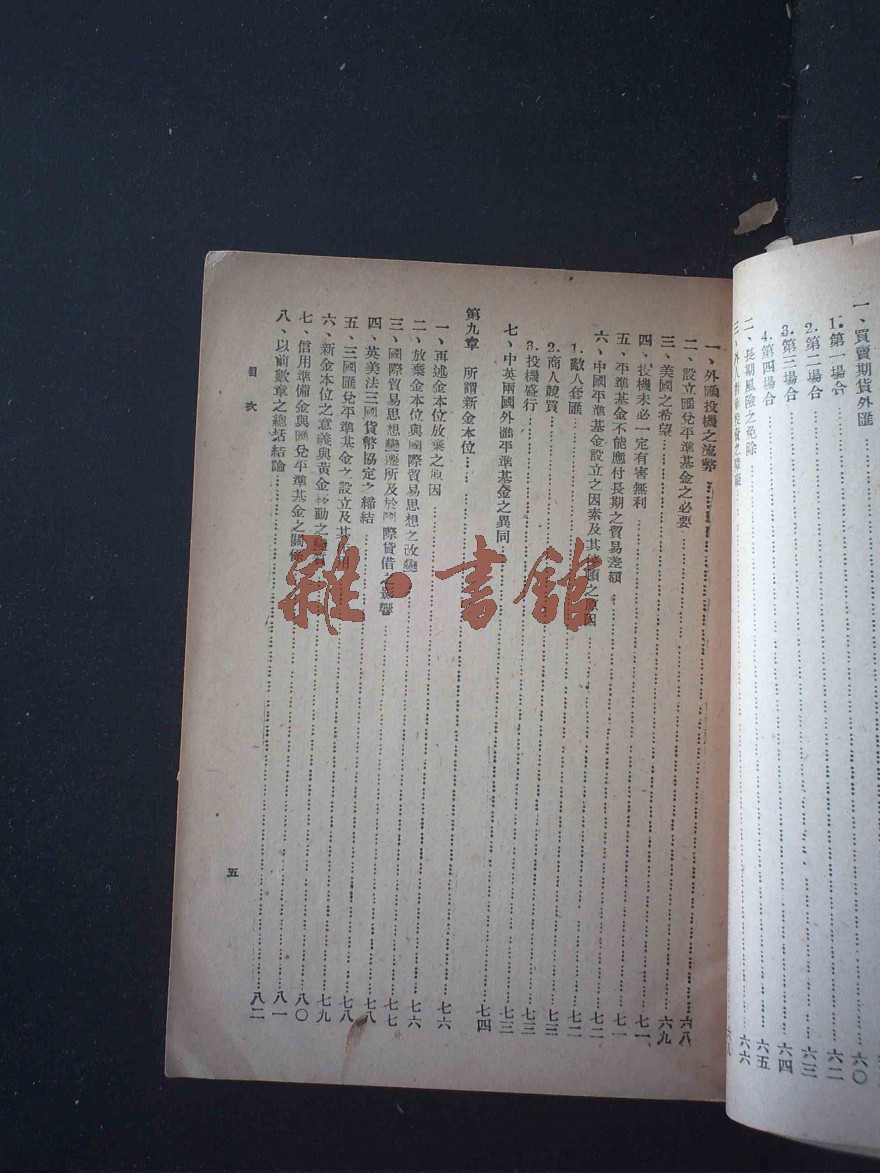 一、買賣期貨外匯……六〇
1.第一場合……六二
2.第二場合……六三
3.第三場合……六四
4.第四場合……六五
二、長期風險之免除……六六
三、外人對華投資之……六八
一、外匯投機之流弊……六八
二、設立匯兌平準基金之必要……六九
三、美國之希望……七一
四、投機未必一定有害無利……七一
五、平準基金不能應付長期之貿易差額……七二
六、中國平準基金設立之因素及其停頓之原因……七二
1.敵人套匯……七三
2.商人競買……七三
3.投機盛行……七三
七、中英兩國外匯平準基金之異同……七四
第九章 所謂新金本位……七六
一、再述金本位放棄之原因……七六
二、放棄金本位與國際貿易思想之改變……七七
三、國際貿易思想變遷所及於國際貸借之影響……七八
四、英美法三國貨幣協定之締結……七八
五、三國匯兌平準基金之設立及其用……七九
六、新金本位之意義與黃金移動之……八〇
七、信用準備金與匯兌平準基金之關係……八一
八、以前數章之總括結論……八二
目次
五
雜·書館